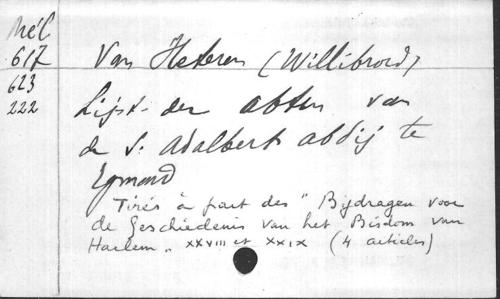 Mél
617
623
222
Van Heteren (Willibrord)
Lijst der abten van
de S. Adalberts abdij te
Egmond
Tirés à part des "Bijdragen voor
de Geschiedenis van het Bisdom van
Haarlem" XXVIII et XXIX (4 articles)